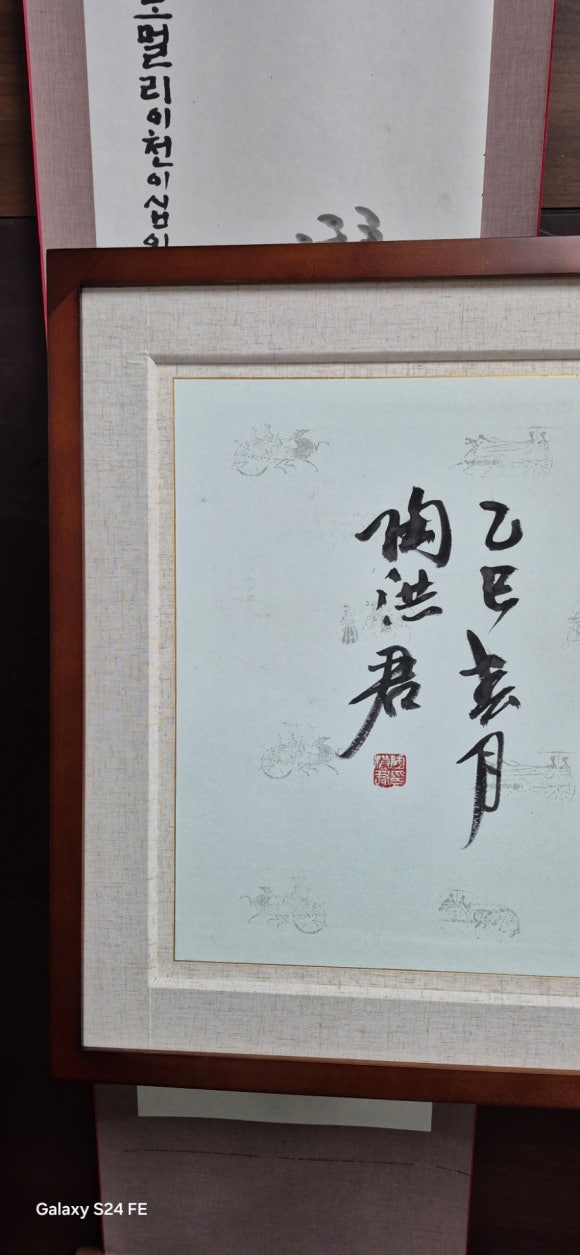 멀리이천이십이
乙巳春月
陶洪君
陶洪君印
Galaxy S24 FE